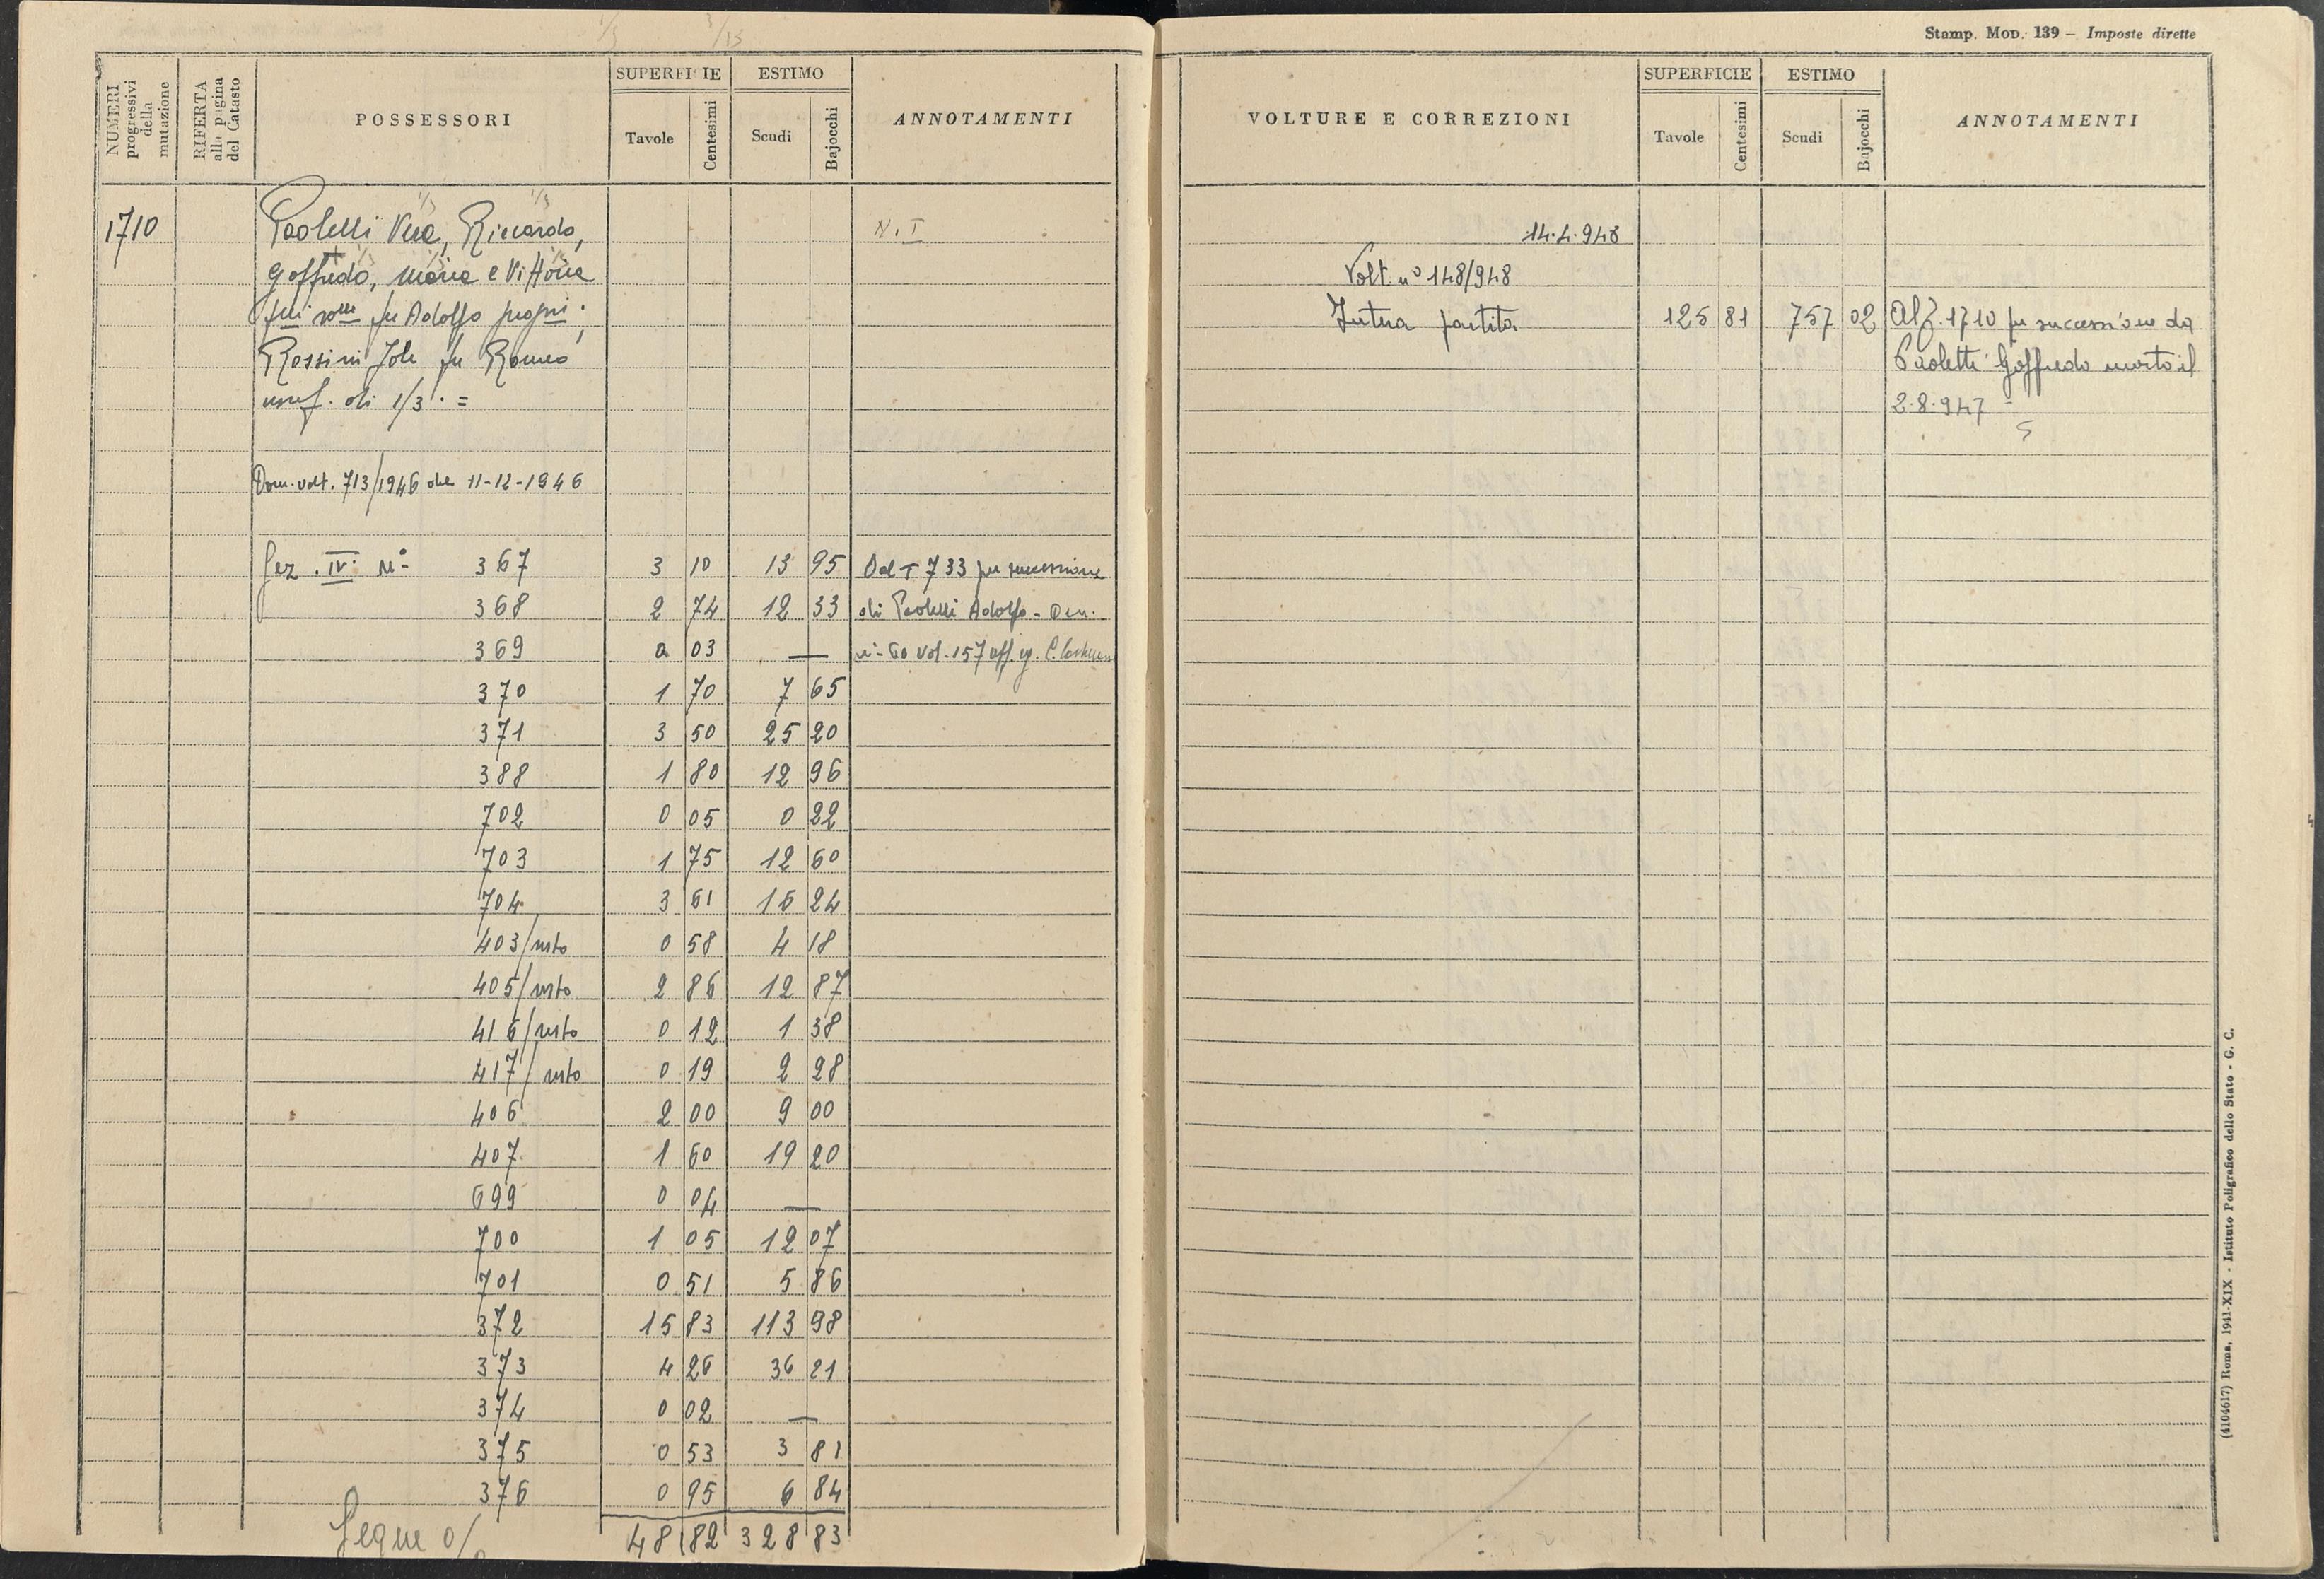 Stamp. Mod. 139 – Imposte dirette
1/3 3/15
NUMERI progressivi della mutazione
RIFERTA alla pagina del Catasto
POSSESSORI
SUPERFICIE
Tavole Centesimi
ESTIMO
Scudi Bajocchi
ANNOTAMENTI
1710 Paoletti Vera, Riccardo, N. I
Goffredo, Maria e Vittoria
fu Adolfo propri.
Rossini Jole fu Romeo
usuf. di 1/3. =
Dom. volt. 713/1946 del 11-12-1946
Sez. IV: N° 367 3 10 13 95 Dal T 733 per successione
368 2 74 12 33 di Paoletti Adolfo - Den.
369 0 03 — n° 60 vol. 157 uff. rg.
370 1 70 7 65
371 3 50 25 20
388 1 80 12 96
702 0 05 0 22
703 1 75 12 60
704 3 61 16 24
403/resto 0 58 4 18
405/resto 2 86 12 87
416/resto 0 12 1 38
417/resto 0 19 2 28
406 2 00 9 00
407 1 60 19 20
699 0 04 —
700 1 05 12 07
701 0 51 5 86
372 15 83 113 98
373 4 26 36 21
374 0 02 —
375 0 53 3 81
376 0 95 6 84
Segue 48 82 328 83
VOLTURE E CORREZIONI
SUPERFICIE
Tavole Centesimi
ESTIMO
Scudi Bajocchi
ANNOTAMENTI
14.4.948
Volt. n° 148/948
Intera partita 125 81 757 02 Al 1710 per successione da
Paoletti Goffredo morto il
2.8.947 =
(4104617) Roma, 1941-XIX - Istituto Poligrafico dello Stato - G. C.